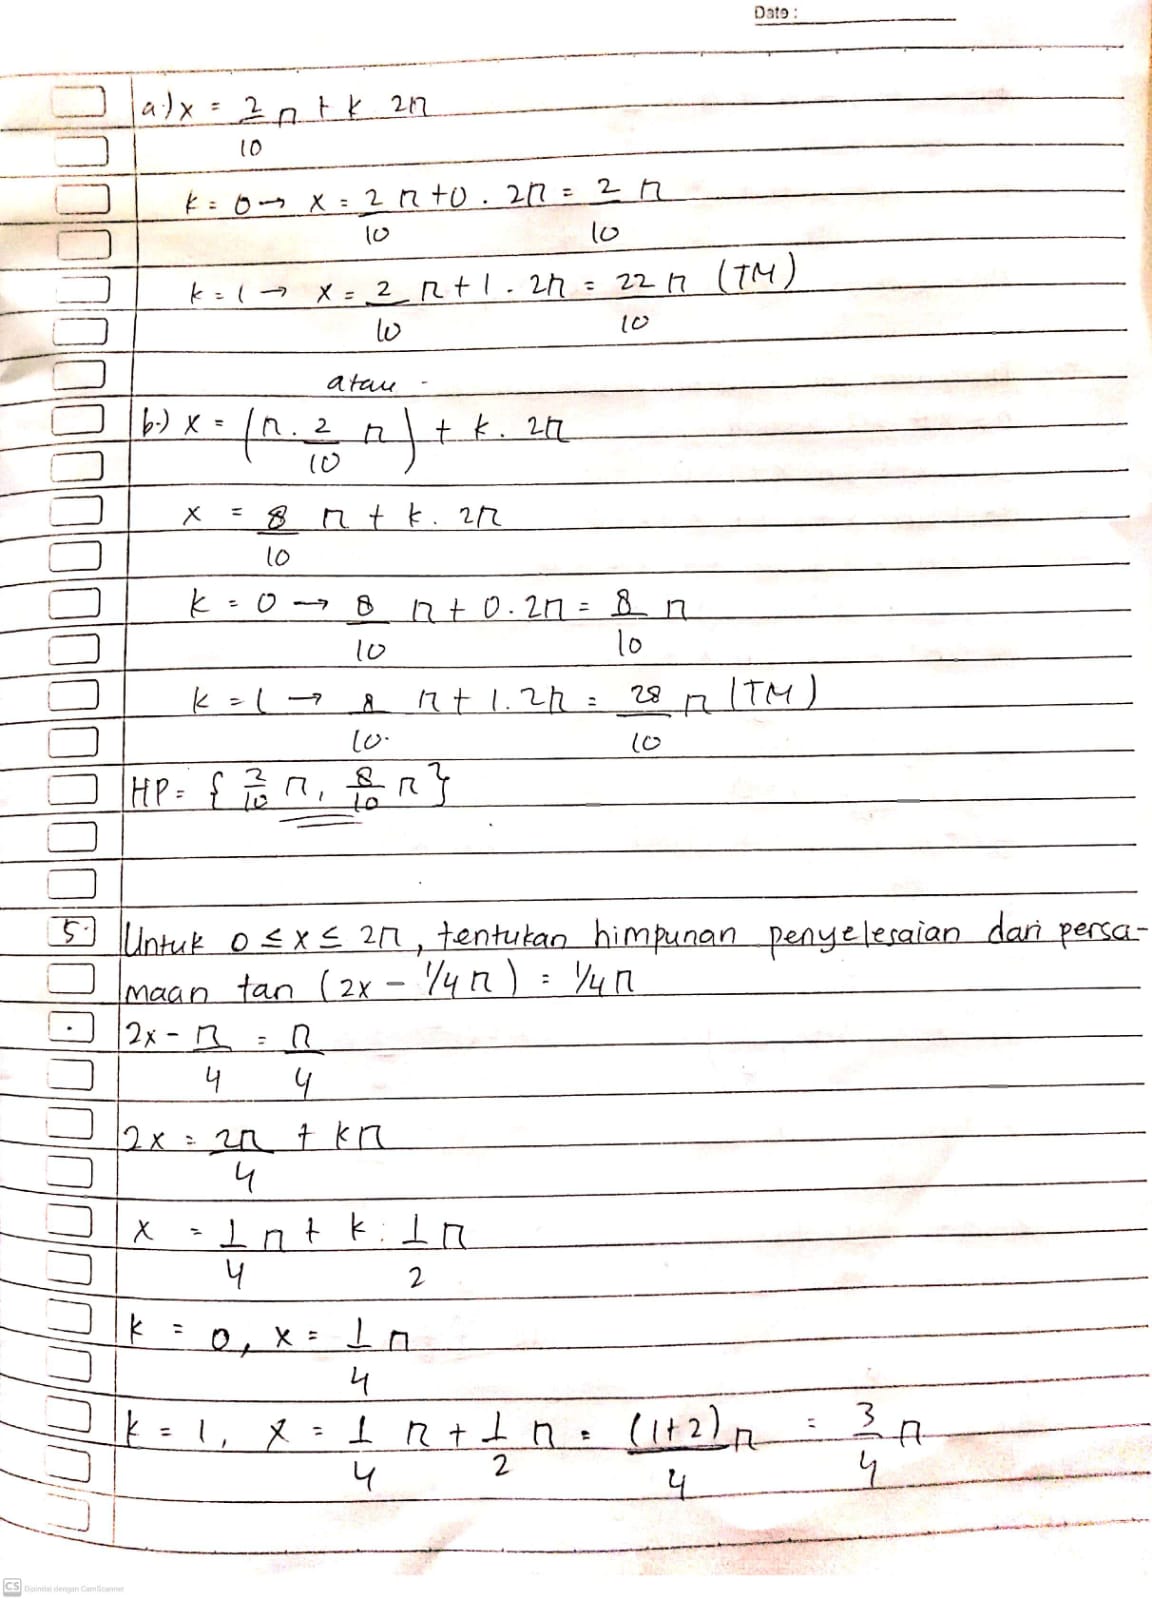 Date :
a.) x = 2/10 π + k 2π
k = 0 → x = 2/10 π + 0 . 2π = 2/10 π
k = 1 → x = 2/10 π + 1 . 2π = 22/10 π (TM)
atau -
b.) x = (π . 2/10 π) + k . 2π
x = 8/10 π + k . 2π
k = 0 → 8/10 π + 0 . 2π = 8/10 π
k = 1 → 8/10 π + 1 . 2π = 28/10 π (TM)
HP = { 2/10 π, 8/10 π }
5. Untuk 0 ≤ x ≤ 2π, tentukan himpunan penyelesaian dari persa-
maan tan (2x - 1/4 π) = 1/4 π
2x - π/4 = π/4
2x = 2π/4 + kπ
x = 1/4 π + k . 1/2 π
k = 0, x = 1/4 π
k = 1, x = 1/4 π + 1/2 π = (1+2)/4 π = 3/4 π
CS Dipindai dengan CamScanner